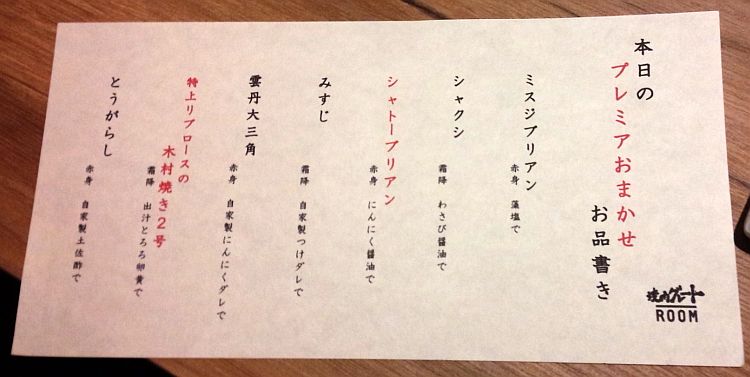 本日の
プレミアおまかせ
お品書き
ミスジブリアン
赤身 藻塩で
シャクシ
霜降 わさび醤油で
シャトーブリアン
赤身 にんにく醤油で
みすじ
霜降 自家製つけダレで
雲丹大三角
赤身 自家製にんにくダレで
特上リブロースの
木村焼き2号
霜降 出汁とろろ卵黄で
とうがらし
赤身 自家製土佐酢で
焼肉グレート
ROOM